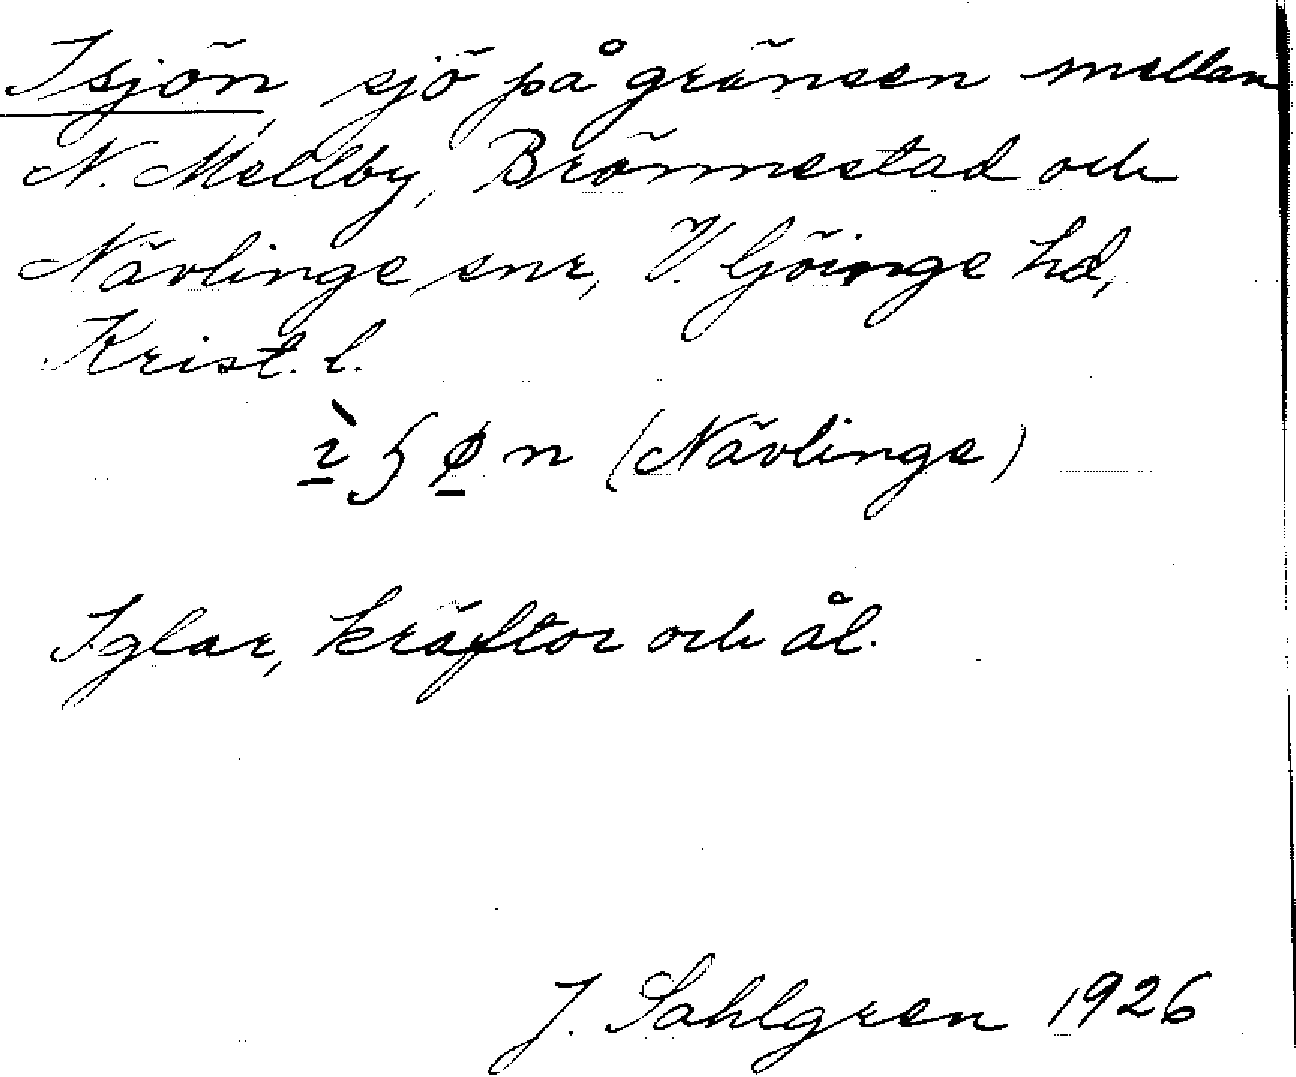 Isjön, sjö på gränsen mellan
N. Mellby, Brönnestad och
Nävlinge snr, V. Göinge hd,
Krist. l.
ı̱̀ ʃ ø̱ n (Nävlinge)
Iglar, kräftor och ål.
J. Sahlgren 1926